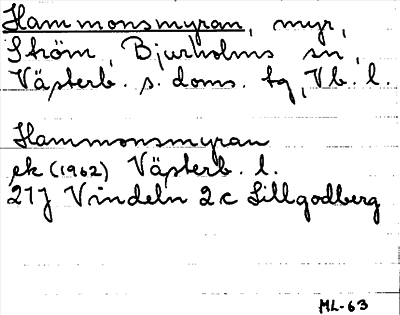 Hammonsmyran, myr,
Ström, Bjurholms sn,
Västerb. s. doms. tg, Vb. l.
Hammonsmyran
ek (1962) Västerb. l.
21J Vindeln 2c Lillgodberg
ML-63